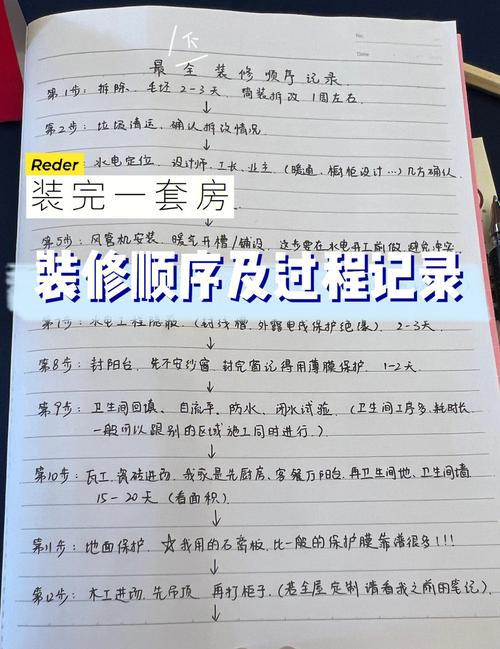 下
No.
Date
最全装修顺序记录
第1步：拆除、毛坯2-3天 简装拆改 1周左右
第2步：垃圾清运、确认拆改情况
Reder
水电定位、设计师、工长、业主（暖通、橱柜设计…）几方确认
装完一套房
第5步：风管机安装、暖气开槽/铺设、这步要在水电开工前做、避免冲突
装修顺序及过程记录
第7步：水电工程隐蔽、（封线槽、外露电线保护绝缘）2-3天、
第8步：封阳台、先不安纱窗、封完窗记得用薄膜保护、1-2天
第9步：卫生间回填、自流平、防水、闭水试验、（卫生间工序多、耗时长、
一般可以跟别的区域施工同时进行、）
第10步：瓦工、瓷砖进场、我家是先厨房、客餐厅阳台、再卫生间地、卫生间墙
15-20天（看面积）
第11步：地面保护、☆我用的石膏板、比一般的保护膜靠谱很多！！！
第12步：木工进场、先吊顶 再打柜子、（若全屋定制请看我之前的笔记）、